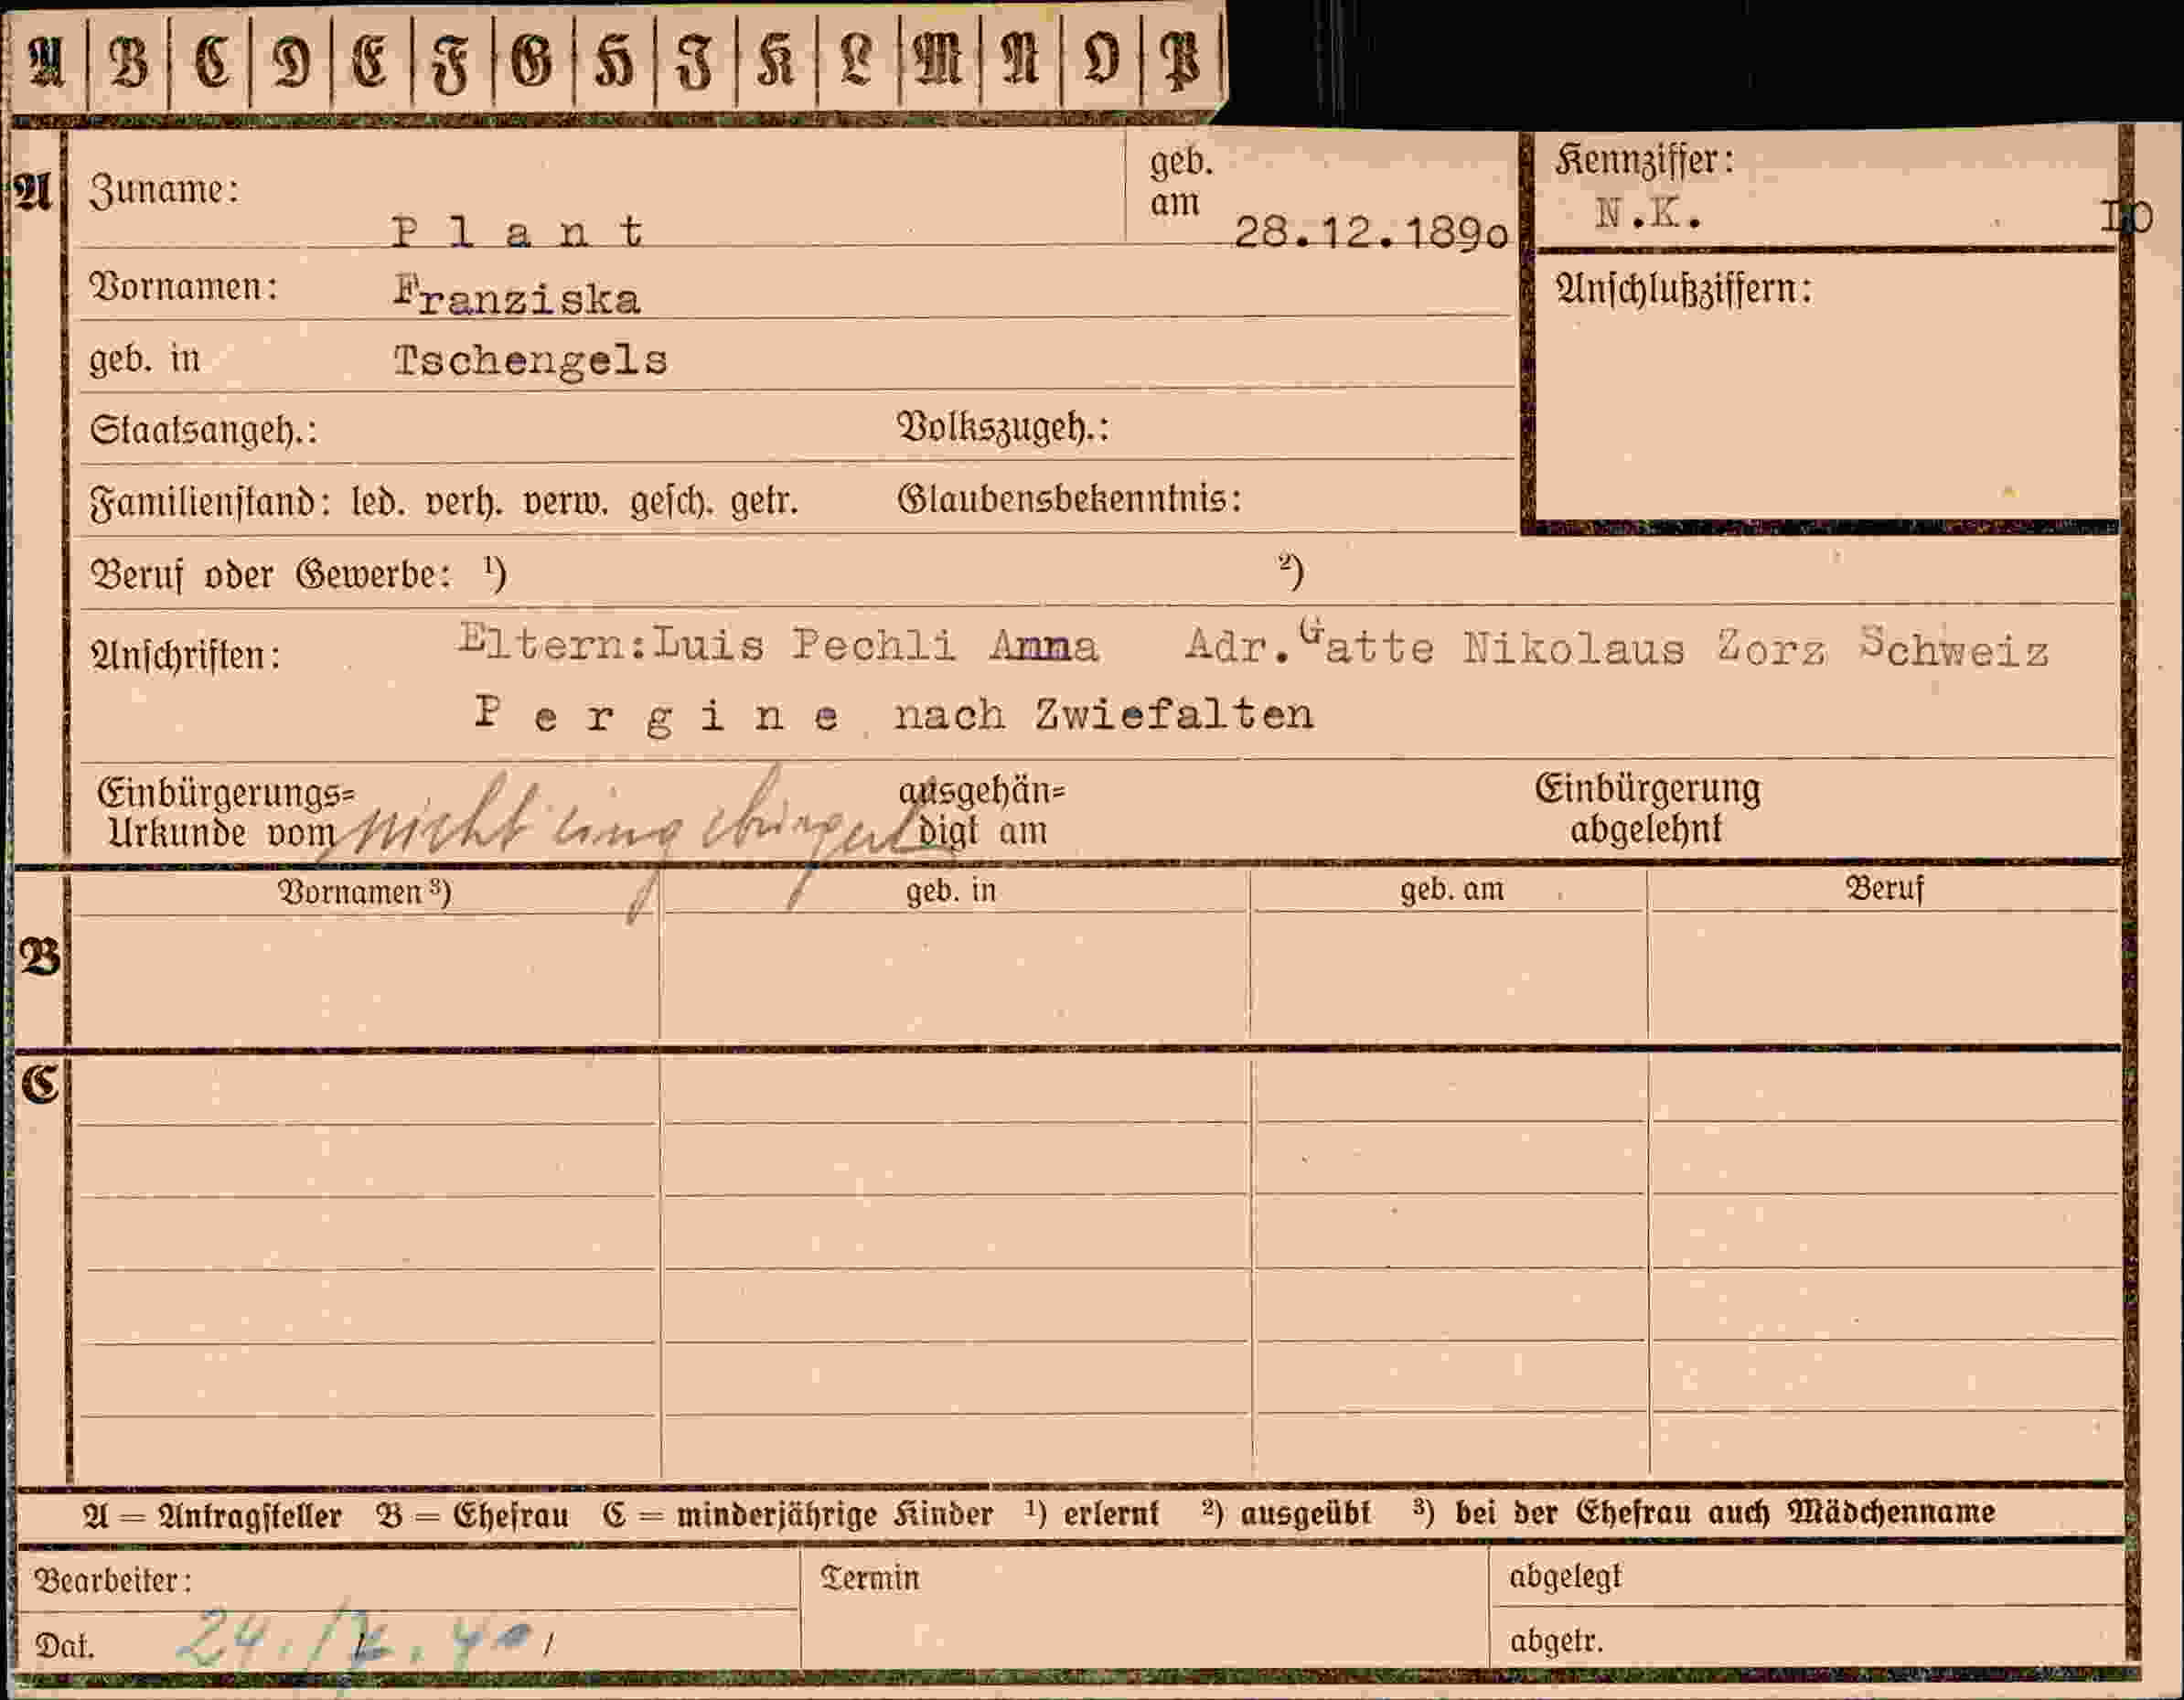 A B C D E F G H J K L M N O P
A Zuname: P l a n t geb. am 28.12.1890
Kennziffer: N.K. IO
Vornamen: Franziska
Anschlußziffern:
geb. in Tschengels
Staatsangeh.: Volkszugeh.:
Familienstand: led. verh. verw. gesch. getr. Glaubensbekenntnis:
Beruf oder Gewerbe: ¹) ²)
Anschriften: Eltern:Luis Pechli Anna Adr.Gatte Nikolaus Zorz Schweiz
P e r g i n e nach Zwiefalten
Einbürgerungs= ausgehän= Einbürgerung
Urkunde vom nicht eingebürgert digt am abgelehnt
Vornamen ³) geb. in geb. am Beruf
B
C
A = Antragsteller B = Ehefrau C = minderjährige Kinder ¹) erlernt ²) ausgeübt ³) bei der Ehefrau auch Mädchenname
Bearbeiter: Termin abgelegt
Dat. abgetr.